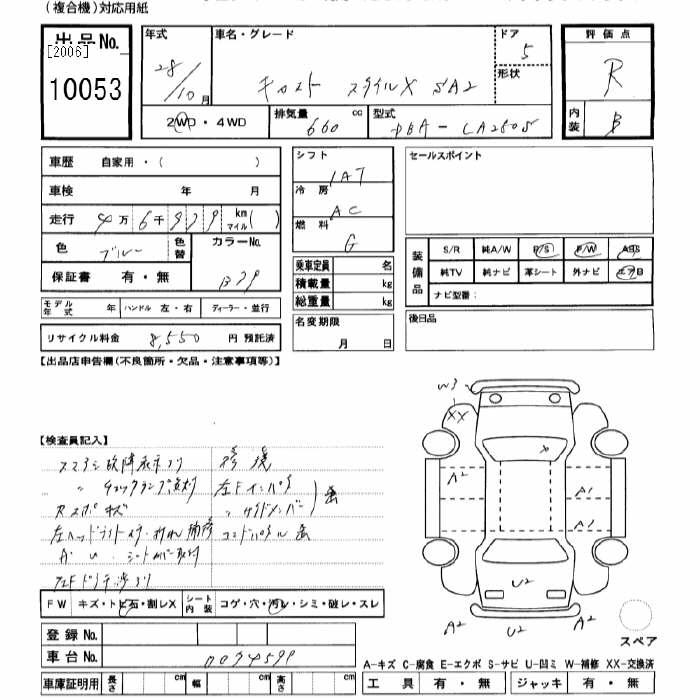 （複合機）対応用紙
出品No.
[2006]
10053
年式
28/10月
車名・グレード
キャスト スタイルX SA2
ドア
5
形状
評価点
R
2WD・4WD
排気量
660
cc
型式
DBA-LA250S
内装
B
車歴 自家用・（ ）
車検 年 月
走行 4万6千929 km マイル（ ）
色 ブルー 色替 カラーNo. B79
保証書 有・無
モデル年式 年 ハンドル 左・右 ディーラー・並行
リサイクル料金 8,550 円 預託済
シフト
IAT
冷房
AC
燃料
G
乗車定員 名
積載量 kg
総重量 kg
名変期限
月 日
セールスポイント
装備品
S/R 純A/W P/S P/W ABS
純TV 純ナビ 革シート 外ナビ エアB
ナビ型番：
後日品
【出品店申告欄（不良箇所・欠品・注意事項等）】
【検査員記入】
スマアシ故障表示有り 修復
〃 チェックランプ点灯 左Fインパネ
Rスポキズ 〃 サイドメンバー 歪
コアパネル 歪
A U シートカバー取付
FW キズ・トビ石・割レX シート内装 コゲ・穴・汚レ・シミ・破レ・スレ
登録No.
車台No. 0094599
車庫証明用 長さ cm 幅 cm 高さ cm
W3
XX
A2
A1
A1
U2
A2
U2
A2
スペア
A-キズ C-腐食 E-エクボ S-サビ U-凹ミ W-補修 XX-交換済
工具 有・無 ジャッキ 有・無